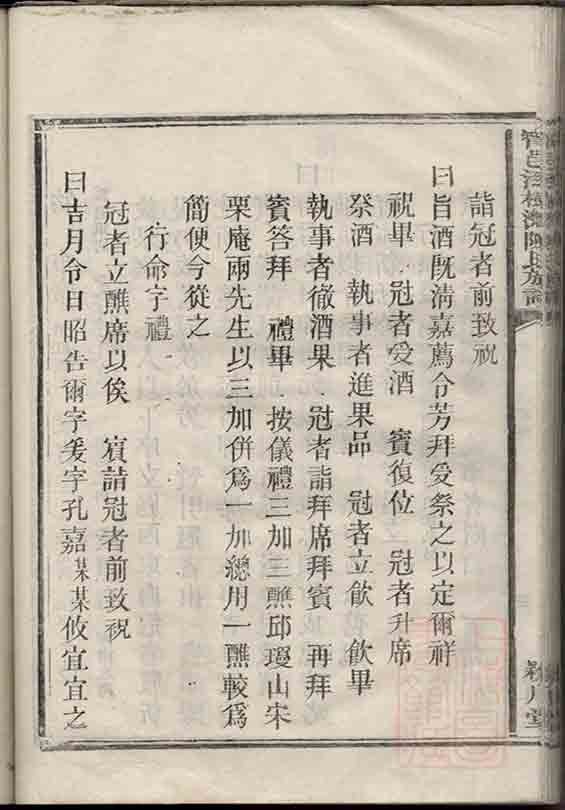 詣冠者前致祝
曰旨酒既清嘉薦令芳拜受祭之以定爾祥
祝畢 冠者受酒 賓復位 冠者升席
祭酒 執事者進果品 冠者立飲 飲畢
執事者徹酒果 冠者詣拜席拜賓 再拜
賓答拜 禮畢 按儀禮三加三醮邱瓊山宋
栗庵兩先生以三加併爲一加總用一醮較爲
簡便今從之
行命字禮
冠者立醮席以俟 賓詣冠者前致祝
曰吉月令日昭告爾字爰字孔嘉某某攸宜宜之